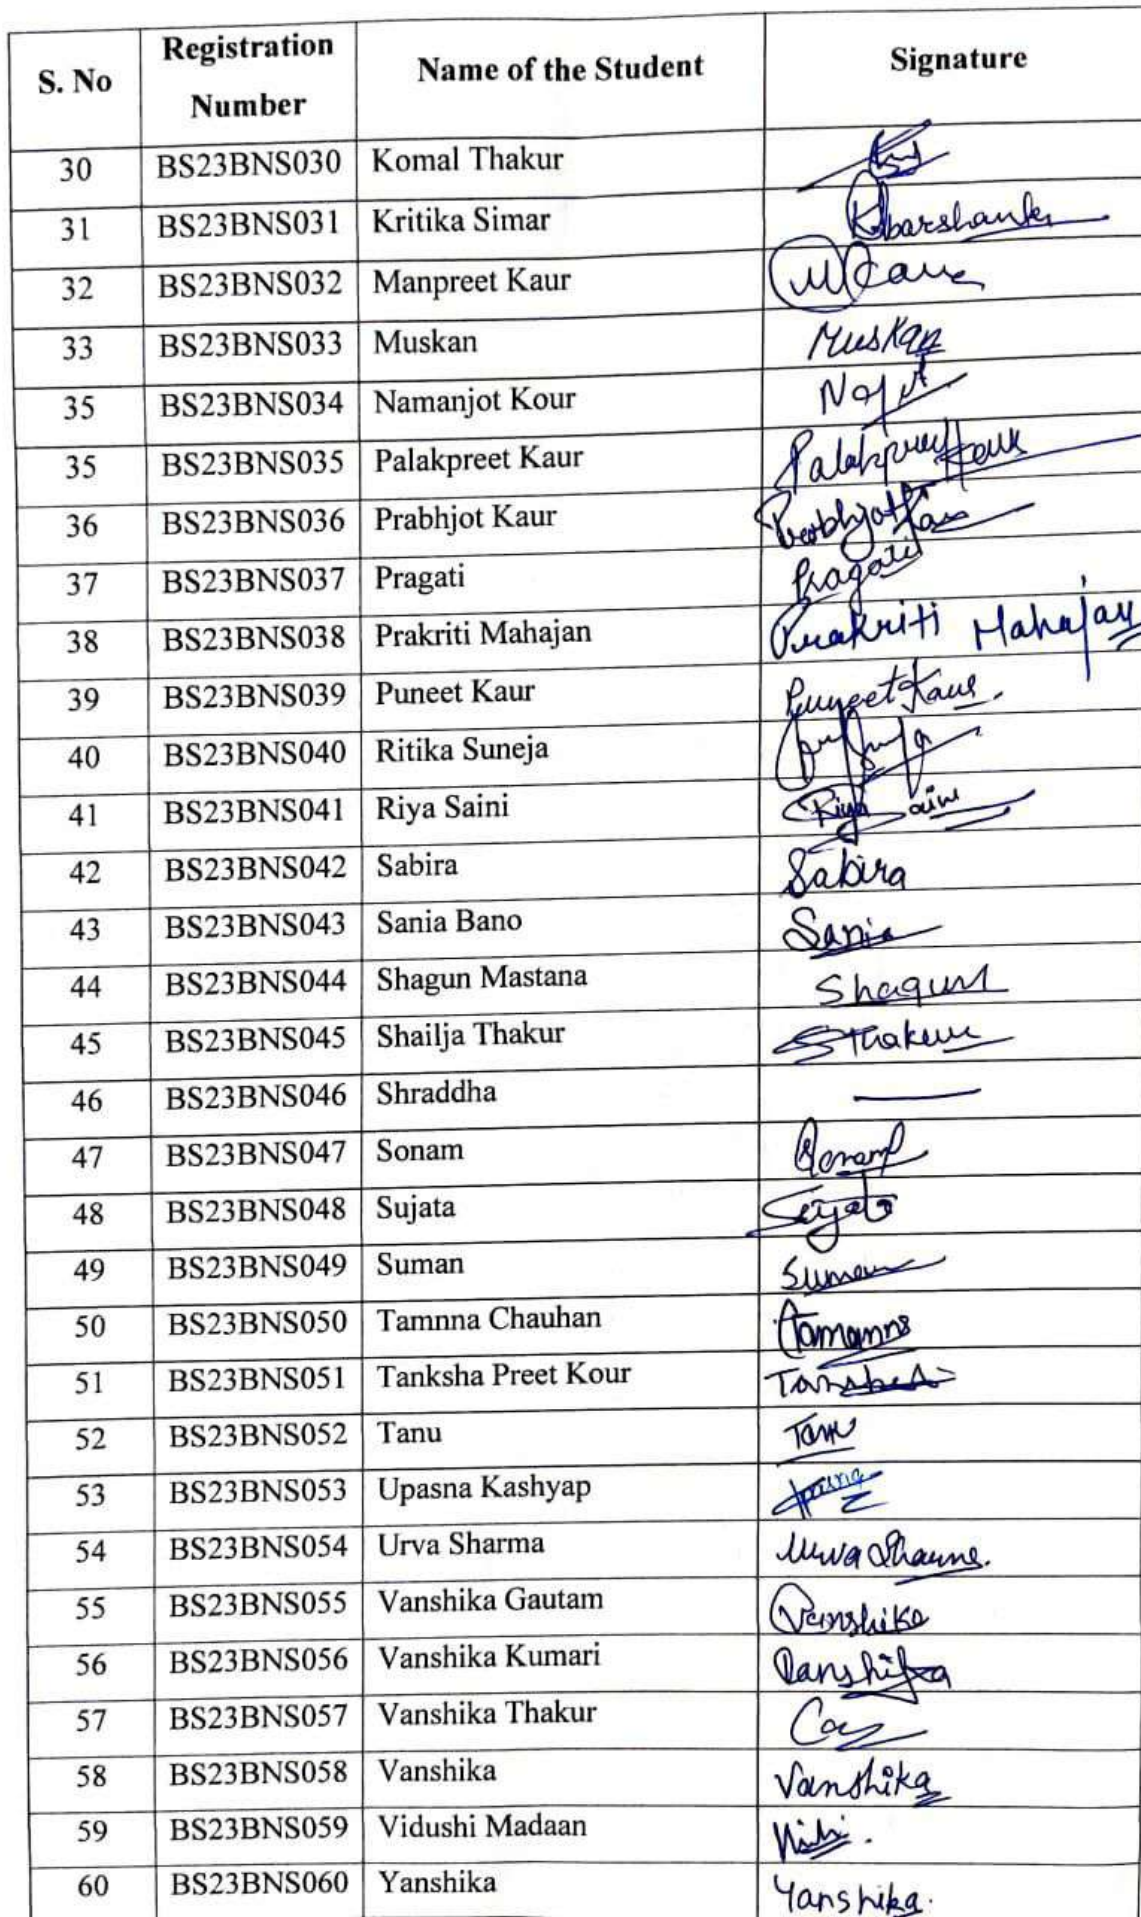 S. No Registration Number Name of the Student Signature
30 BS23BNS030 Komal Thakur
31 BS23BNS031 Kritika Simar
32 BS23BNS032 Manpreet Kaur
33 BS23BNS033 Muskan Muskan
35 BS23BNS034 Namanjot Kour
35 BS23BNS035 Palakpreet Kaur Palakpreet Kaur
36 BS23BNS036 Prabhjot Kaur Prabhjot Kaur
37 BS23BNS037 Pragati Pragati
38 BS23BNS038 Prakriti Mahajan Prakriti Mahajan
39 BS23BNS039 Puneet Kaur Puneet Kaur.
40 BS23BNS040 Ritika Suneja
41 BS23BNS041 Riya Saini Riya Saini
42 BS23BNS042 Sabira Sabira
43 BS23BNS043 Sania Bano Sania
44 BS23BNS044 Shagun Mastana Shagun
45 BS23BNS045 Shailja Thakur SThakur
46 BS23BNS046 Shraddha —
47 BS23BNS047 Sonam Sonam
48 BS23BNS048 Sujata Sujata
49 BS23BNS049 Suman Suman
50 BS23BNS050 Tamnna Chauhan Tamanna
51 BS23BNS051 Tanksha Preet Kour
52 BS23BNS052 Tanu Tanu
53 BS23BNS053 Upasna Kashyap
54 BS23BNS054 Urva Sharma Urva Sharma.
55 BS23BNS055 Vanshika Gautam Vanshika
56 BS23BNS056 Vanshika Kumari Vanshika
57 BS23BNS057 Vanshika Thakur
58 BS23BNS058 Vanshika Vanshika
59 BS23BNS059 Vidushi Madaan
60 BS23BNS060 Yanshika Yanshika.